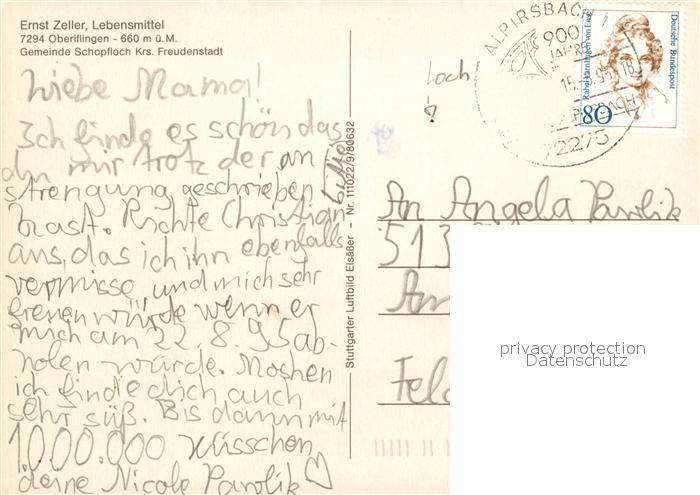 Ernst Zeller, Lebensmittel
7294 Oberiflingen - 660 m ü.M.
Gemeinde Schopfloch Krs. Freudenstadt
Liebe Mama!
Ich finde es schön das
du mir trotz der an
strengung geschrieben
hast. Richte Christian bitte
aus, das ich ihn ebenfalls
vermisse und mich sehr
freuen würde wenn er
mich am 22.8.95 ab-
holen würde. Moshen
ich finde dich auch
sehr süß. Bis dann mit
1000.000 küsschen
deine Nicole Pawlik
Stuttgarter Luftbild Elsäßer - Nr. 111022/9/80632
Loch
ALPIRSBACH
900
JAHRE
72275
Rahel Varnhagen von Ense
Deutsche Bundespost
80
An Angela Pawlik
513
Am
Feld
privacy protection
Datenschutz